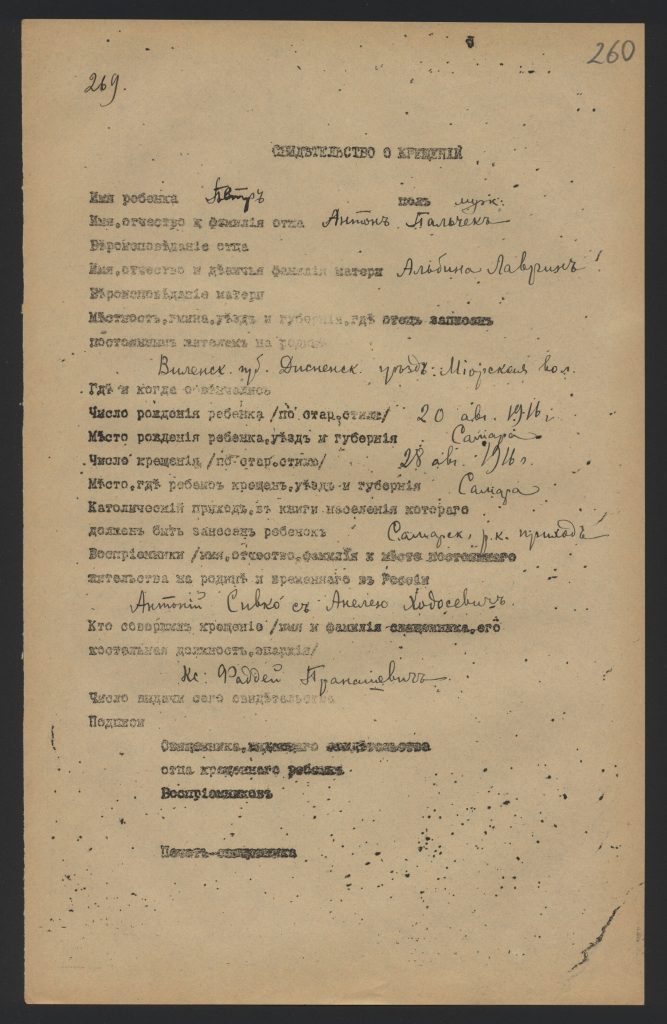 260
269.
СВИДѢТЕЛЬСТВО О КРЕЩЕНІИ
Имя ребенка Петръ полъ муж.
Имя, отчество и фамилія отца Антонъ Пальчекъ
Вѣроисповѣданіе отца
Имя, отчество и дѣвичья фамилія матери Альбина Лавринъ
Вѣроисповѣданіе матери
Мѣстность, гмина, уѣздъ и губернія, гдѣ отецъ записанъ
постояннымъ жителемъ на родинѣ
Виленск. губ. Дисненск. уѣздъ: Міорская вол.
Гдѣ и когда обвѣнчались
Число рожденія ребенка /по стар. стилю/ 20 авг. 1916 г.
Мѣсто рожденія ребенка, уѣздъ и губернія Самара
Число крещенія /по стар. стилю/ 28 авг. 1916 г.
Мѣсто, гдѣ ребенокъ крещенъ, уѣздъ и губернія Самара
Католическій приходъ, въ книги населенія котораго
долженъ быть занесенъ ребенокъ Самарск. р.к. приходъ
Воспріемники /имя, отчество, фамилія и мѣсто постояннаго
жительства на родинѣ и временнаго въ Россіи
Антоній Сивко съ Анелею Ходосевичъ.
Кто совершилъ крещеніе /имя и фамилія священника, его
костельная должность, епархія/
Кс: Фаддей
Число выдачи сего свидѣтельства
Подписи
Священника, выдающаго свидѣтельство
отца крещеннаго ребенка
Воспріемниковъ
Печать священника